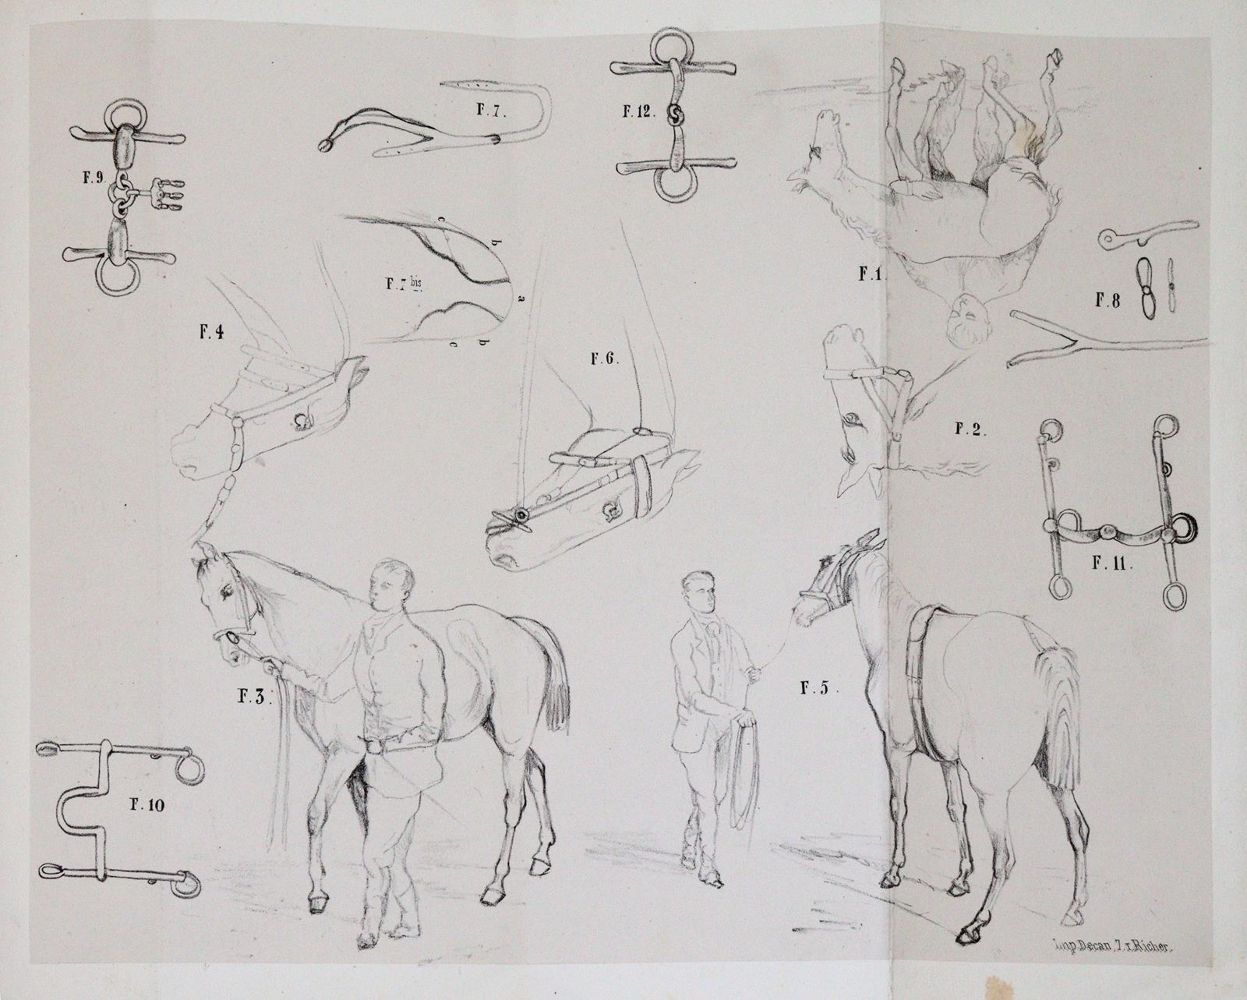 F. 7.
F. 12.
F. 9.
F. 7 bis
c
b
a
b
c
F. 1.
F. 8
F. 4
F. 6.
F. 2.
F. 11.
F. 3.
F. 5.
F. 10
Imp. Decan, 7. r. Richer.